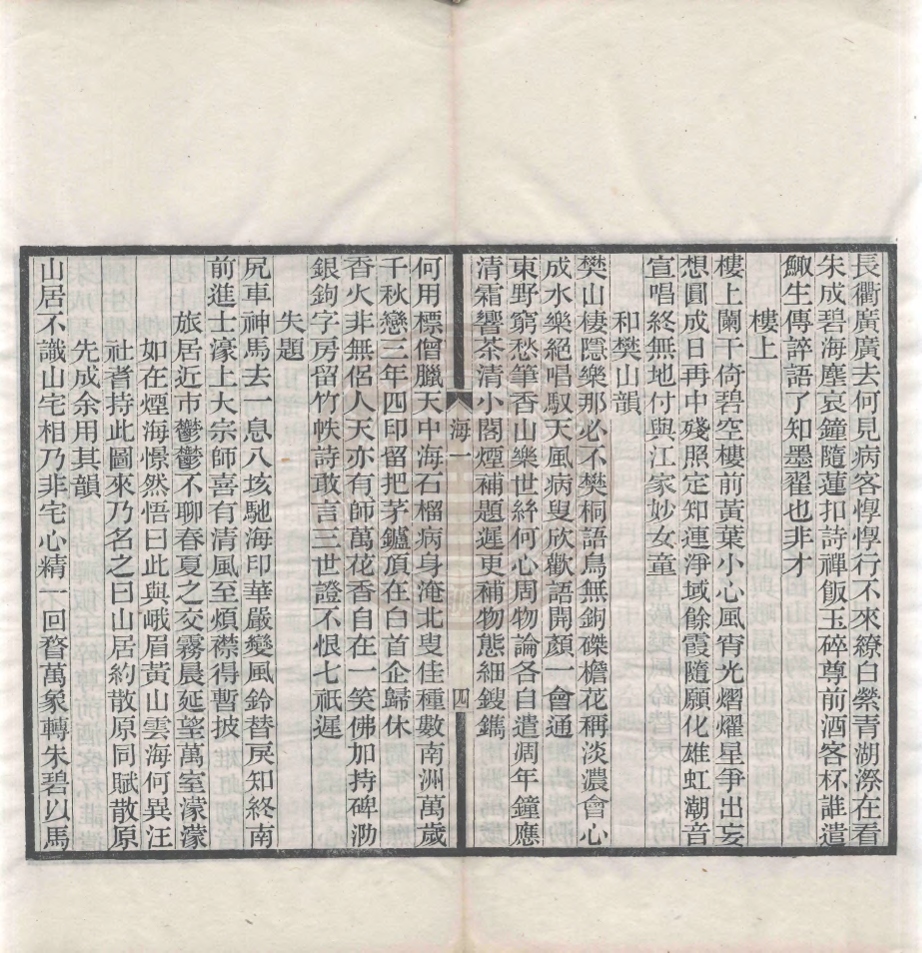 長衢廣廣去何見病客惸惸行不來繚白縈青湖漈在看
朱成碧海塵哀鐘隨蓮扣詩禪飯玉碎尊前酒客杯誰遣
鯫生傳誶語了知墨翟也非才
樓上
樓上闌干倚碧空樓前黃葉小心風宵光熠燿星爭出妄
想圓成日再中殘照定知連淨域餘霞隨願化雄虹潮音
宣唱終無地付與江家妙女童
和樊山韻
樊山棲隱樂那必不樊桐語鳥無鉤磔檐花稱淡濃會心
成水樂絕唱馭天風病叟欣歡語開顏一會通
東野窮愁筆香山樂世終何心周物論各自遣凋年鐘應
清霜響茶清小閣煙補題遲更補物態細鎪鐫
海一
四
何用標僧臘天中海石榴病身淹北叟佳種數南洲萬歲
千秋戀三年四印留把茅鑪頂在白首企歸休
香火非無侶人天亦有師萬花香自在一笑佛加持碑泐
銀鉤字房留竹帙詩敢言三世證不恨七祇遲
失題
尻車神馬去一息八垓馳海印華嚴變風鈴替戾知終南
前進士濠上大宗師喜有清風至煩襟得暫披
旅居近市鬱鬱不聊春夏之交霧晨延望萬室濛濛
如在煙海憬然悟曰此與峨眉黃山雲海何異汪
社耆持此圖來乃名之曰山居約散原同賦散原
先成余用其韻
山居不識山宅相乃非宅心精一回瞀萬象轉朱碧以馬